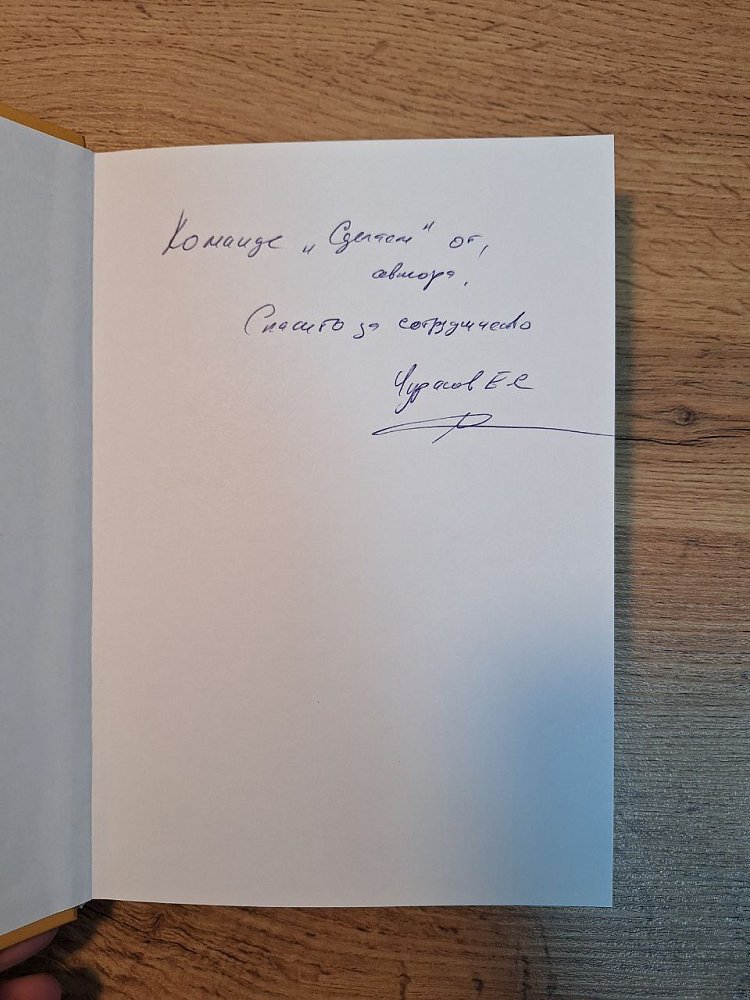 Команде „Сделаем" от,
автора,
Спасибо за сотрудничество
Чурасов Е С